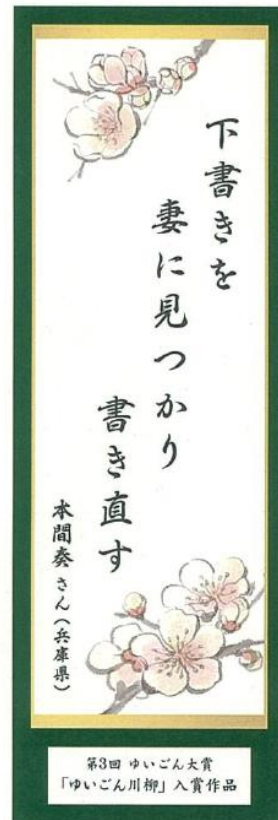 下書きを
妻に見つかり
書き直す
本間奏さん（兵庫県）
第3回 ゆいごん大賞
「ゆいごん川柳」入賞作品